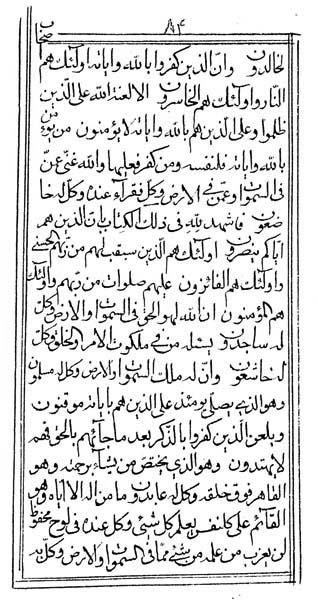 ٨٩٤
لخالدون وان الذين كفروا بالله واياته اولئك هم
النار واولئك هم الخاسرون الا لعنة الله على الذين
ظلموا وعلى الذين هم بالله واياته لا يؤمنون من يؤمن
بالله واياته فلنفسه ومن كفر فعليها والله غني عمن
في السموات وعمن في الارض وكل فقراء عنده وكل له خا
ضعون فاشهد لله في ذلك الكتاب بان الذين هم
اياكم ينصرون اولئك هم الذين سبقت لهم من ربهم الحسنى
واولئك هم الفائزون عليهم صلوات من ربهم واولئك
هم المؤمنون ان الله لهو الحق في السموات والارض وكل
له ساجدون يسئله من في ملكوت الامر والخلق وكل
له خاشعون وان له ملك السموات والارض وكل له مسلمون
وهو الذي يصلي يومئذ على الذين هم باياته موقنون
ويلعن الذين كفروا بالذكر بعد ما جائهم بالحق فهم
لا يهتدون وهو الذي يختص من يشاء برحمته وهو
القاهر فوق خلقه وكل له عابدون وما من اله الا اياه وهو
القائم على كل نفس يعلم كل شيئ وكل عنده في لوح محفوظ
لن يعزب من علمه من شيئ مما في السموات والارض وكل به